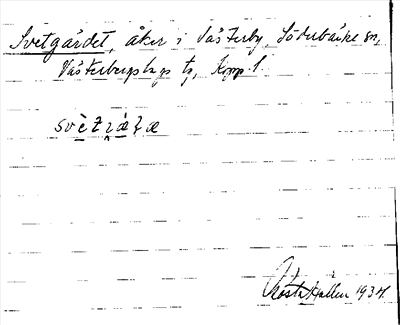 Svetgärdet, åker i Västerby, Söderbärke sn,
Västerbergslags ts, Kopp. l.
Gösta Hallén 1934.